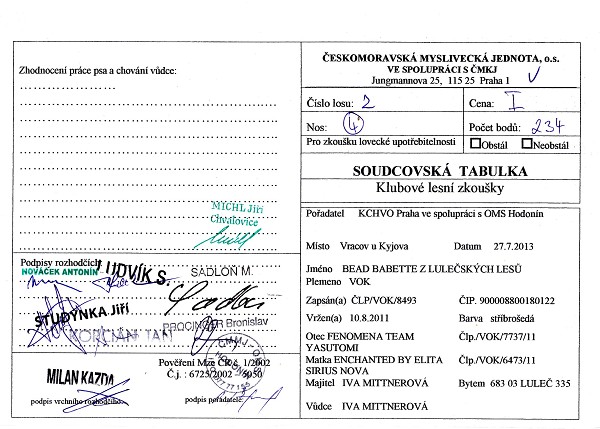 Zhodnocení práce psa a chování vůdce:
MICHL Jiří
Chvalovice
Podpisy rozhodčích
NOVÁČEK ANTONÍN
LUDVÍK S.
SADLOŇ M.
STUDYNKA Jiří
PROCINGER Bronislav
KORČIÁN JAN
Pověření Mze ČR č. 1/2002
Č.j. : 6725/2002 - 5050
MILAN KAZDA
podpis vrchního rozhodčího.
podpis pořadatele:
ČESKOMORAVSKÁ MYSLIVECKÁ JEDNOTA, o.s.
VE SPOLUPRÁCI S ČMKJ
Jungmannova 25, 115 25 Praha 1
Číslo losu: 2
Cena: I
Nos: 4
Počet bodů: 234
Pro zkoušku lovecké upotřebitelnosti
Obstál
Neobstál
SOUDCOVSKÁ TABULKA
Klubové lesní zkoušky
Pořadatel KCHVO Praha ve spolupráci s OMS Hodonín
Místo Vracov u Kyjova Datum 27.7.2013
Jméno BEAD BABETTE Z LULEČSKÝCH LESŮ
Plemeno VOK
Zapsán(a) ČLP/VOK/8493 ČIP. 900008800180122
Vržen(a) 10.8.2011 Barva stříbrošedá
Otec FENOMENA TEAM Člp./VOK/7737/11
YASUTOMI
Matka ENCHANTED BY ELITA Člp./VOK/6473/11
SIRIUS NOVA
Majitel IVA MITTNEROVÁ Bytem 683 03 LULEČ 335
Vůdce IVA MITTNEROVÁ